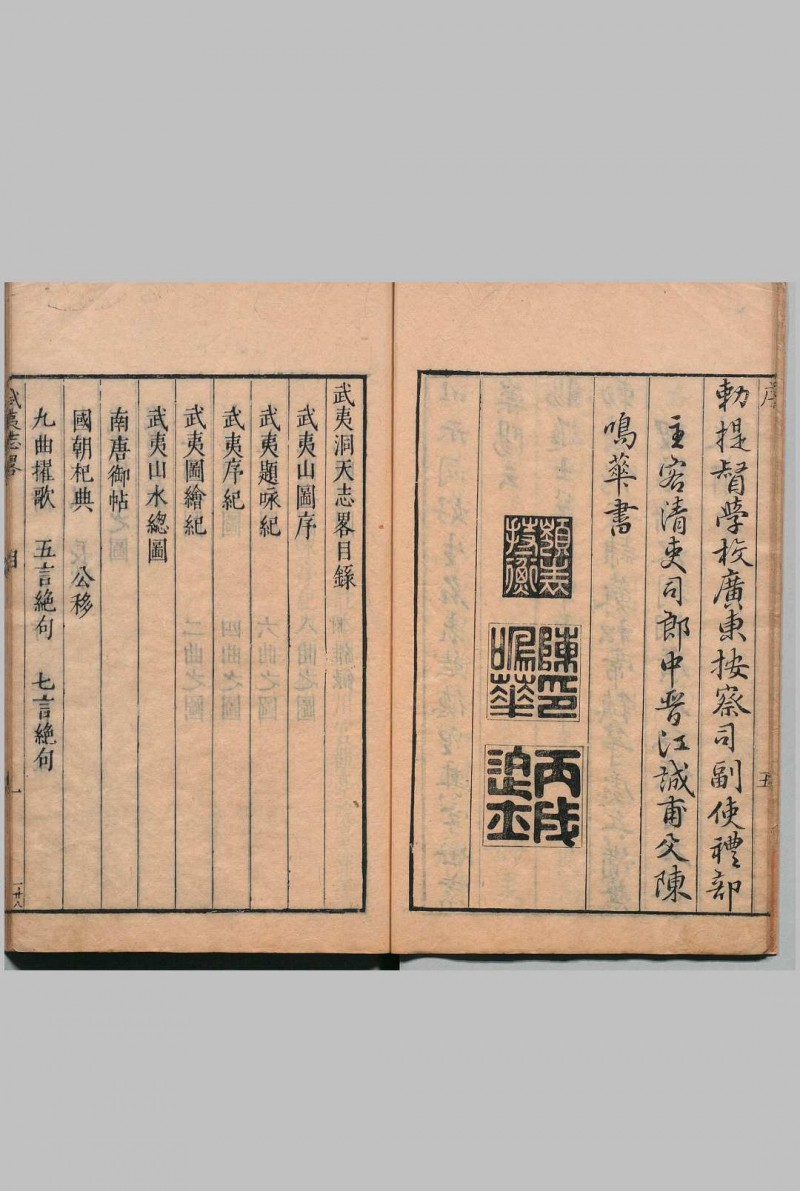 序
五
勅提督學校廣東按察司副使禮部
主客清吏司郎中晉江誠甫父陳
鳴華書
嶺表
持衡
陳印
鳴華
丙戌
進士
武夷洞天志畧目錄
武夷山圖序
武夷題咏紀
武夷序紀
武夷圖繪紀
武夷山水總圖
南唐御帖
國朝祀典 公移
九曲櫂歌 五言絶句 七言絶句
武夷志畧
目
一